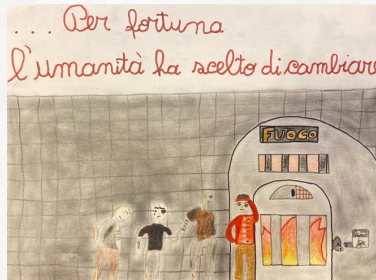 ... Per fortuna
l'umanità ha scelto di cambiare
FUOCO